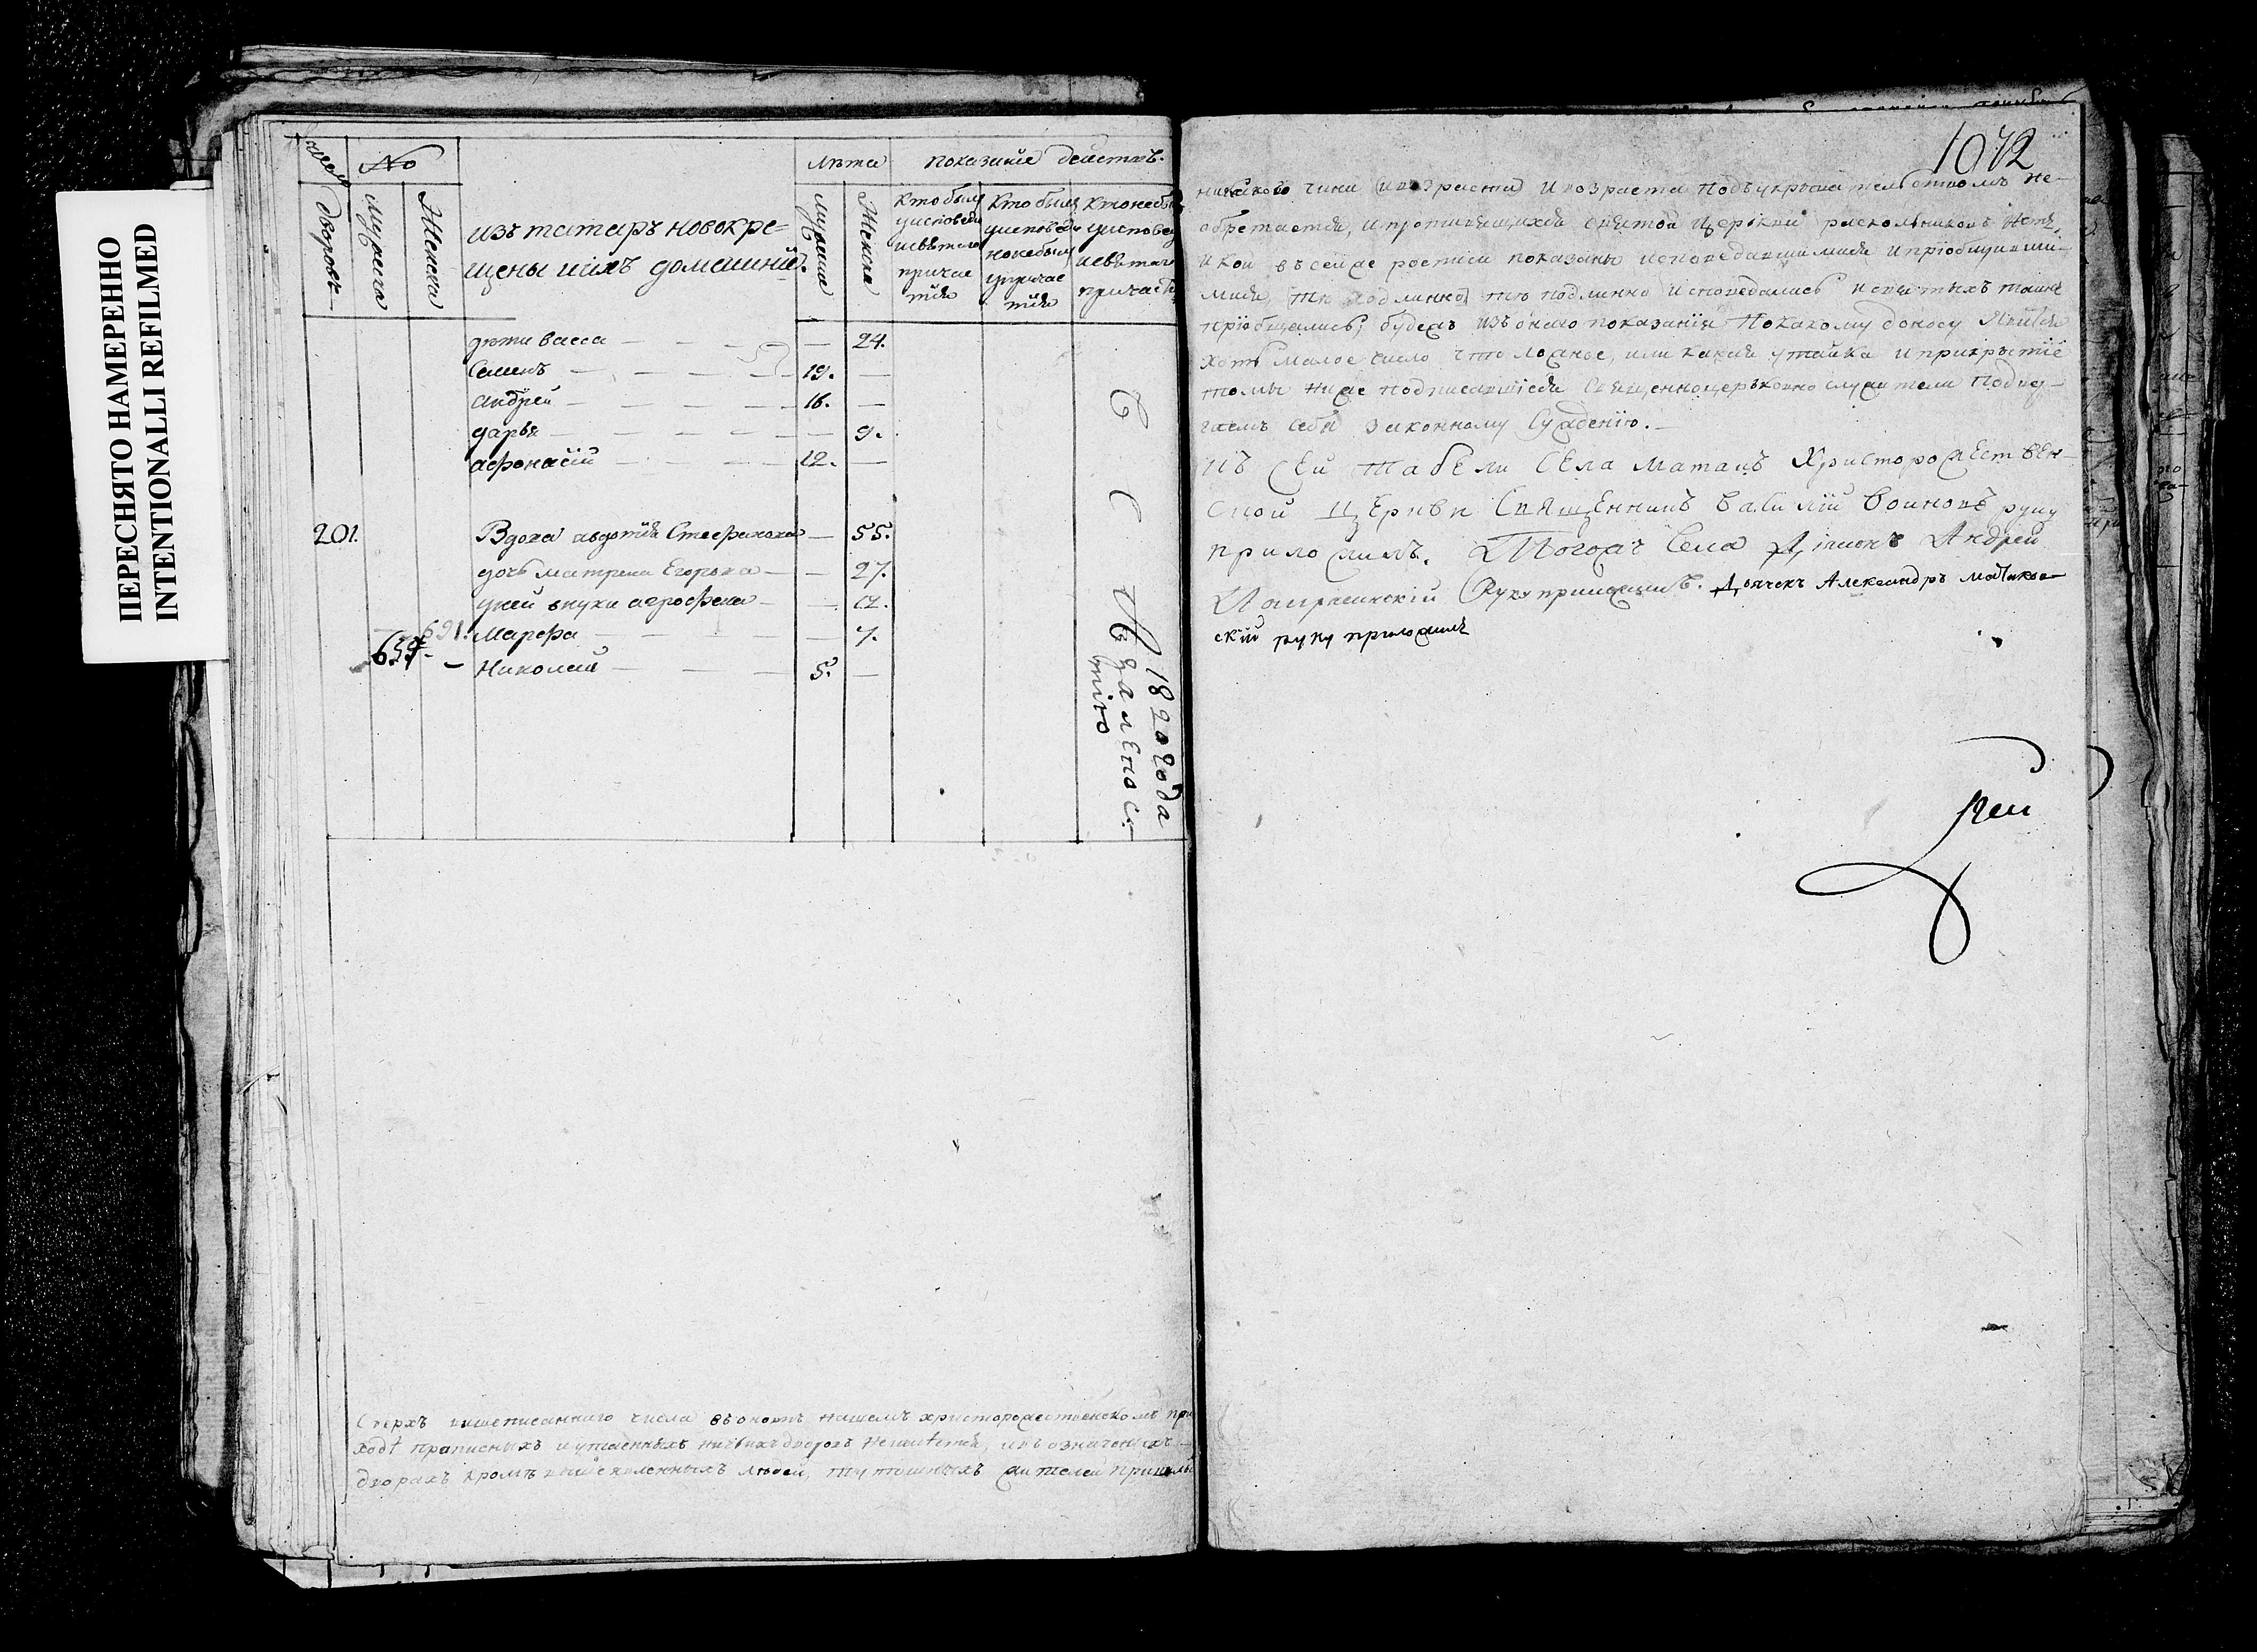 ПЕРЕСНЯТО НАМЕРЕННО
INTENTIONALLI REFILMED
число дворовъ
№
мужеска
Женска
изъ татаръ новокре=
щены иихъ домашнiи.
лѣта
мужеска
Женска
показанiе действъ.
Кто былъ
у исповеди
и святаго
причас
тiя
Кто былъ
у исповеди
но небылъ
у причас
тiя
Кто небы
у исповед
и святаго
причаст
дѣти васса — 24.
Семенъ 19. —
андрей 16. —
дарья — 9.
афонасiй 12. —
201. Вдова авдотiя Стефанова — 55.
дочь матрена Егорова — 27.
у ней внуки агрофена — 12.
691. Марфа — 7.
Николай 5. —
1820 года
Сверхъ вышеписаннаго числа въ ономъ нашемъ христорождественскомъ при
ходѣ прописныхъ и утаенныхъ ничьихъ дворовъ неимѣется, и въ означенныхъ
дворахъ кромѣ вышеявленныхъ людей, тутошныхъ жителей пришлы
1072
никакого чина и возраста и возраста подъ укрывательствомъ не-
обретается, и противящихся святой церькви раскольниковъ нетъ,
и кои въ сей же росписи показаны исповедавшимися и прiобщивши-
мися, те подлинно тѣ подлинно исповедались и святыхъ таинъ
прiобщались; будежъ изъ онаго показанiя по какому доносу явится
хоть малое число что ложное, или какая утайка и прикрытiе
то мы ниже подписавшiеся священноцерьковнослужители подвер-
гаемъ себя законному суждению.
Къ сей табели села Матакъ Христорождествен-
ской церкви Священникъ Василiй Воиновъ руку
приложилъ. Тогожъ села Дiаконъ Андрей
руку приложилъ. Дьячекъ Александръ Матаков-
скiй руку приложилъ